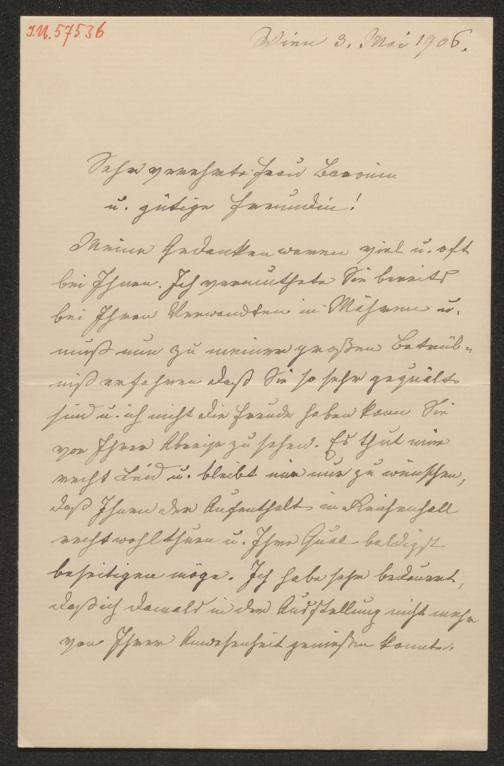 I.N. 57536
Wien 3. Mai 1906.
Sehr verehrte Frau Baronin
u. gütige Freundin!
Meine Gedanken waren viel u. oft
bei Ihnen. Ich vermuthete Sie bereits
bei Ihren Verwandten in Mähren u.
muß nun zu meiner großen Betrüb-
niß erfahren daß Sie so sehr gequält
sind u. ich nicht die Freude haben kann Sie
vor Ihrer Abreise zu sehen. Es thut mir
recht Leid u. bleibt mir nur zu wünschen,
daß Ihnen der Aufenthalt in Reichenhall
recht wohl thuen u. Ihre Qual baldigst
beseitigen möge. Ich habe sehr bedauert,
daß ich damals in der Ausstellung nicht mehr
von Ihrer Anwesenheit genießen konnte.